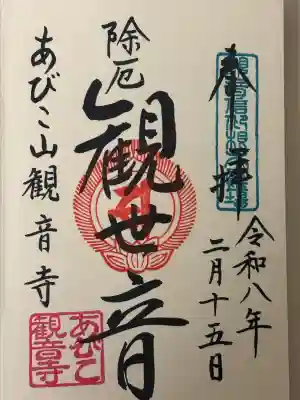 奉拝
令和八年
二月十五日
除厄
観世音
あびこ山観音寺
あびこ
観音寺